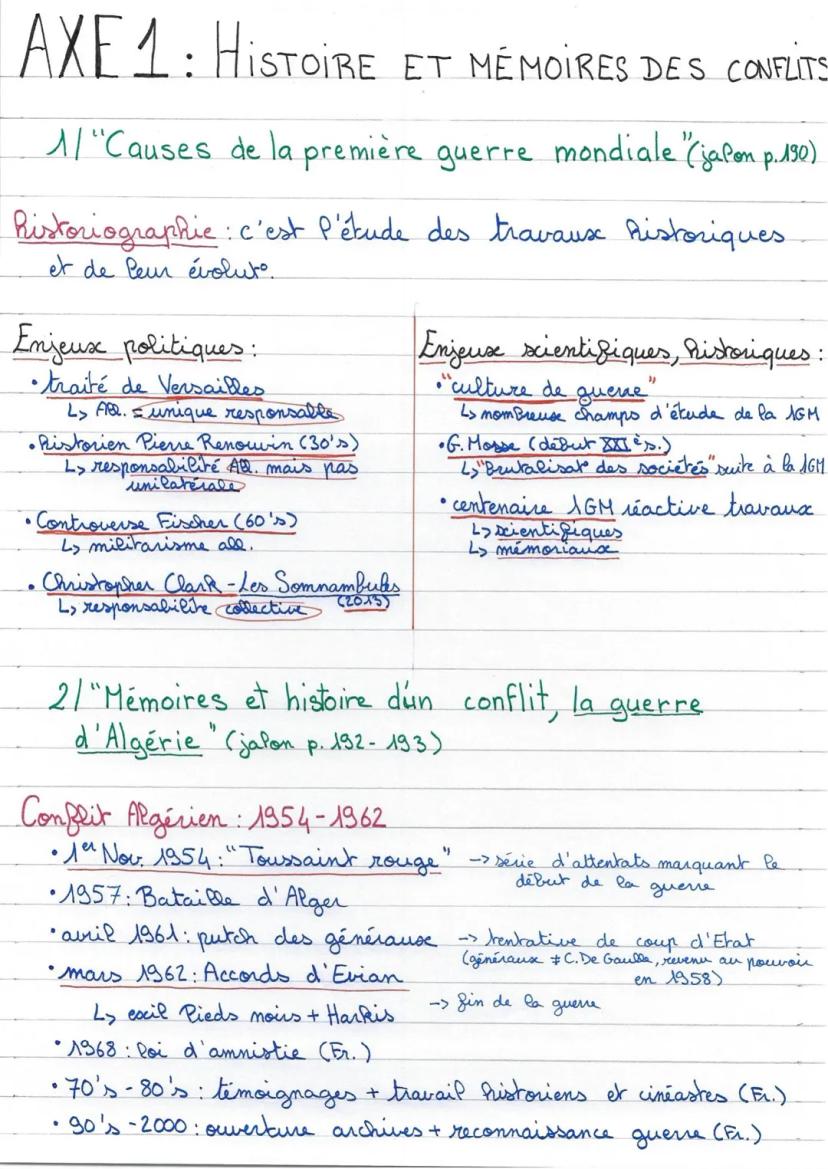 AXE 1 : HISTOIRE ET MÉMOIRES DES CONFLITS
1/ "Causes de la première guerre mondiale" (jalon p.190)
Historiographie : c'est l'étude des travaux historiques
et de leur évolut°.
Enjeux politiques :
• traité de Versailles
↳ All. = unique responsable
• historien Pierre Renouvin (30's)
↳ responsabilité All. mais pas
unilatérale
• Controverse Fischer (60's)
↳ militarisme all.
• Christopher Clark - Les Somnambules
(2013)
↳ responsabilité collective
Enjeux scientifiques, historiques :
• "culture de guerre"
↳ nombreux champs d'étude de la 1GM
• G. Mosse (début XXIè s.)
↳ "Brutalisat° des sociétés" suite à la 1GM
• centenaire 1GM réactive travaux
↳ scientifiques
↳ mémoriaux
2/ "Mémoires et histoire d'un conflit, la guerre
d'Algérie" (jalon p. 192-193)
Conflit Algérien : 1954-1962
• 1er Nov. 1954 : "Toussaint rouge" → série d'attentats marquant le
début de la guerre
• 1957 : Bataille d'Alger
• avril 1961 : putch des généraux → tentative de coup d'Etat
(généraux ≠ C. De Gaulle, revenu au pouvoir
en 1958)
• mars 1962 : Accords d'Evian
→ fin de la guerre
↳ exil Pieds noirs + Harkis
• 1968 : loi d'amnistie (Fr.)
• 70's - 80's : témoignages + travail historiens et cinéastes (Fr.)
• 90's - 2000 : ouverture archives + reconnaissance guerre (Fr.)